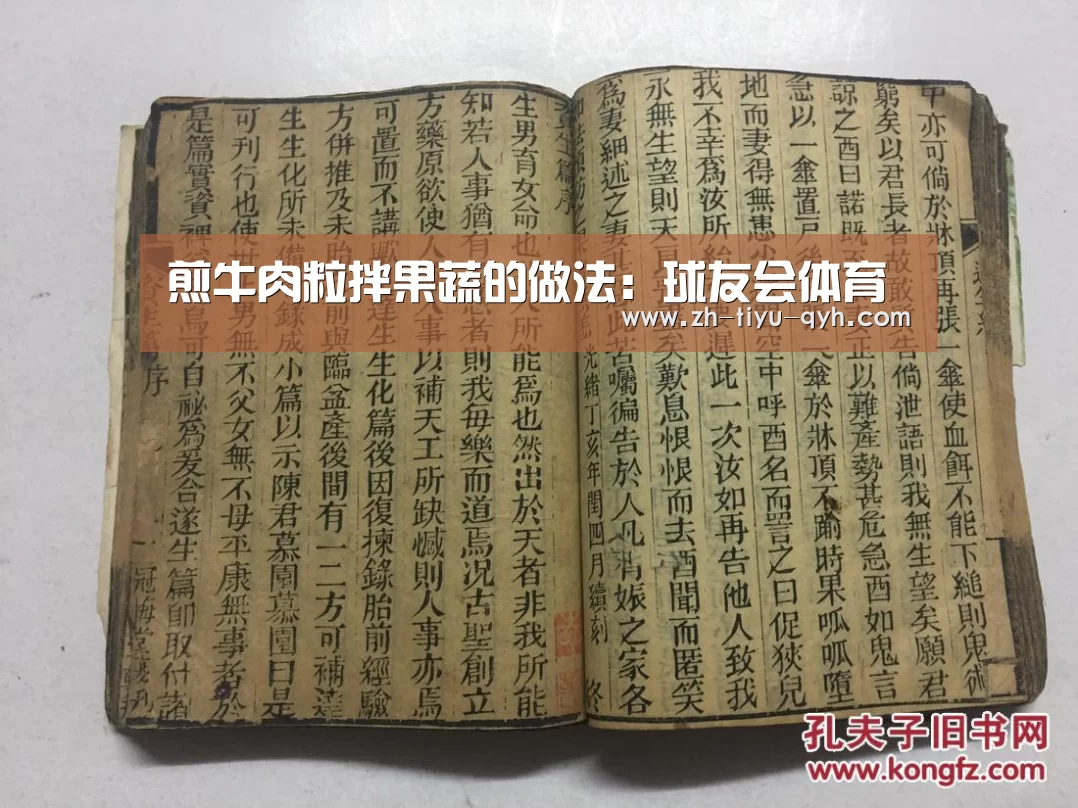 甲亦可倘於牀頂再張一傘使血餌不能下縋則鬼術
窮矣以君長者故敢
告倘泄語則我無生望矣願君
諒之酉曰諾既
正以難產勢甚危急酉如鬼言
急以一傘置戶後
一傘於牀頂不踰時果呱呱墮
地而妻得無患少
空中呼酉名而詈之曰促狹兒
我不幸為汝所
遲此一次汝如再告他人致我
永無生望則天
矣歎息恨恨而去酉聞而匿笑
為妻細述之妻
苦囑徧告於人凡有娠之家各
光緒丁亥年閏四月續刻
終
篇序
生男育女命也
人所能為也然出於天者非我所能
知若人事猶有
者則我每樂而道焉况古聖創立
方藥原欲使人
人事以補天工所缺憾則人事亦焉
可置而不講
達生生化篇後因復揀錄胎前經驗
方併推及未胎前與臨盆產後間有一二方可補達
生生化所未備
錄成小篇以示陳君慕園慕園曰是
可刊行也使世
男無不父女無不母平康無事者於
是篇實資裨
烏可自祕為爰合遂生篇即取付諸
序
一
冠悔堂
煎牛肉粒拌果蔬的做法：球友会体育
www.zh-tiyu-qyh.com
孔夫子旧书网
www.kongfz.com